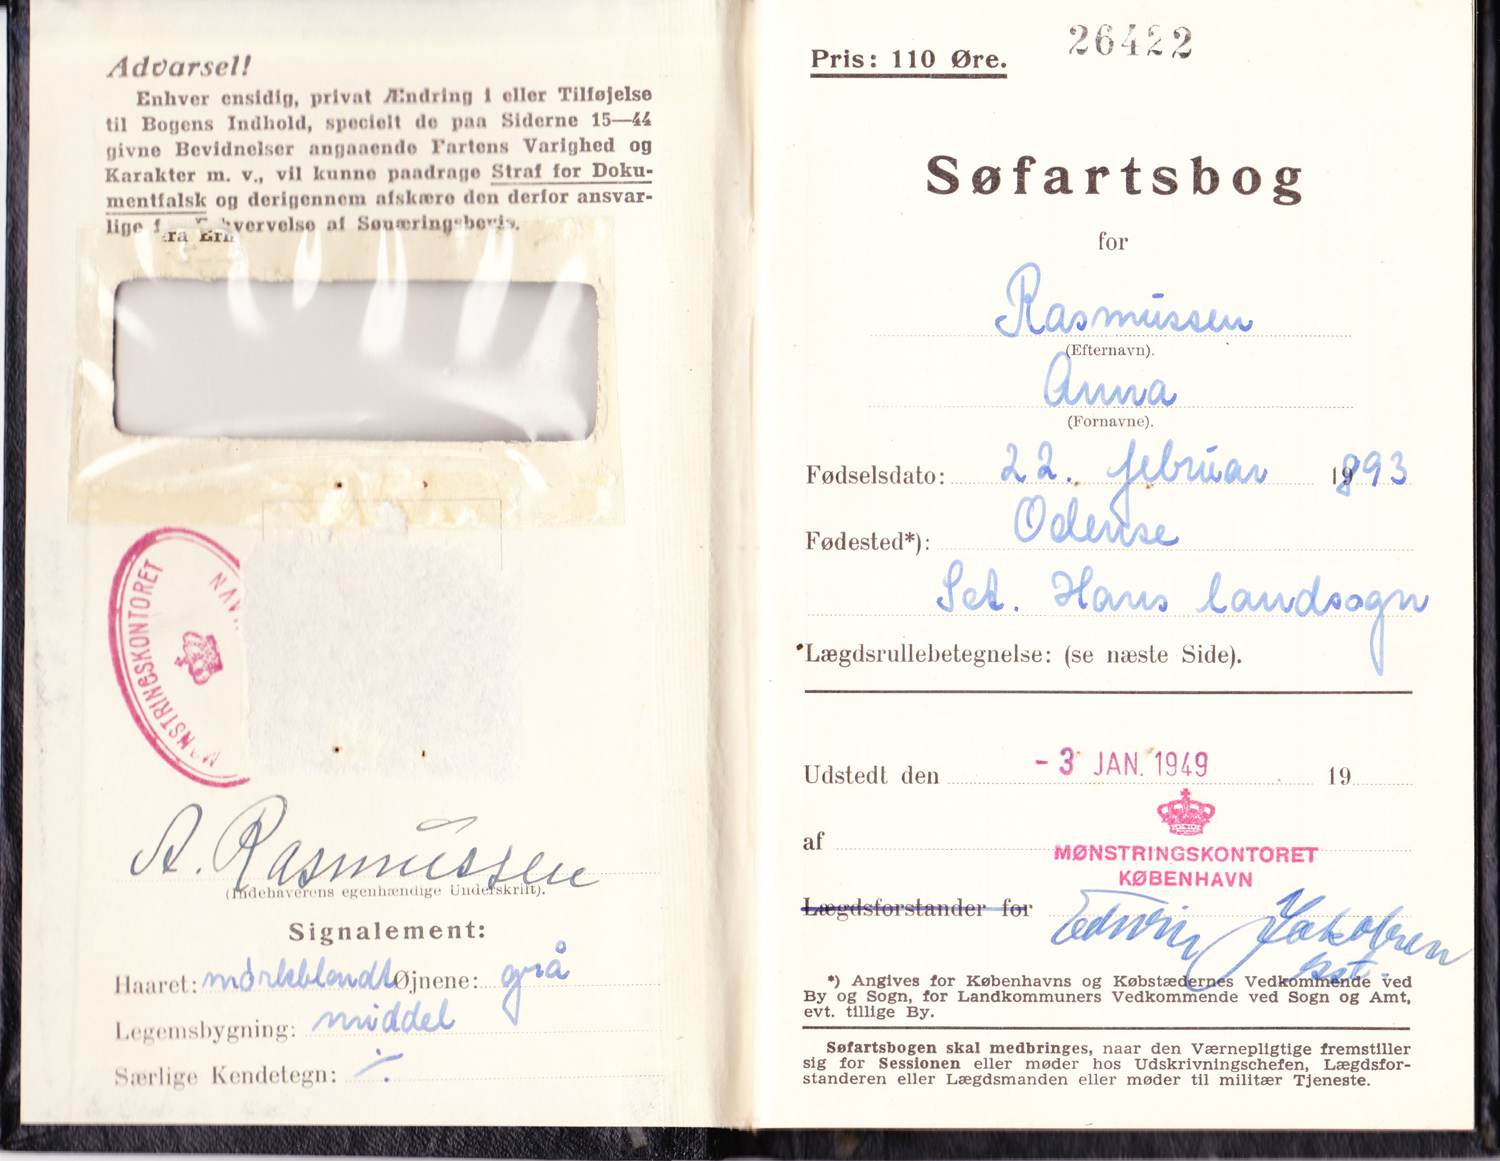 Advarsel!
Enhver ensidig, privat Ændring i eller Tilføjelse
til Bogens Indhold, specielt de paa Siderne 15—44
givne Bevidnelser angaaende Fartens Varighed og
Karakter m. v., vil kunne paadrage Straf for Doku-
mentfalsk og derigennem afskære den derfor ansvar-
lige fra Erhvervelse af Sønæringsbevis.
MØNSTRINGSKONTORET
A. Rasmussen
(Indehaverens egenhændige Underskrift).
Signalement:
Haaret: mörkblondt Øjnene: grå
Legemsbygning: middel
Særlige Kendetegn: ÷
Pris: 110 Øre.
26422
Søfartsbog
for
Rasmussen
(Efternavn).
Anna
(Fornavne).
Fødselsdato: 22. februar 1893
Fødested*): Odense
Sct. Hans landsogn
Lægdsrullebetegnelse: (se næste Side).
Udstedt den - 3 JAN. 1949 19
af
MØNSTRINGSKONTORET
KØBENHAVN
Lægdsforstander for
Edwin Jakobsen
*) Angives for Københavns og Købstædernes Vedkommende ved
By og Sogn, for Landkommuners Vedkommende ved Sogn og Amt,
evt. tillige By.
Søfartsbogen skal medbringes, naar den Værnepligtige fremstiller
sig for Sessionen eller møder hos Udskrivningschefen, Lægdsfor-
standeren eller Lægdsmanden eller møder til militær Tjeneste.